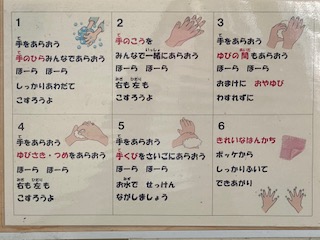 1
手をあらおう
手のひらみんなであらおう
ほーら ほーら
しっかりあわだて
こすろうよ
2
手のこうを
みんなで一緒にあらおう
ほーら ほーら
右も左も
こすろうよ
3
手をあらおう
ゆびの間もあらおう
ほーら ほーら
おまけに おやゆび
わすれずに
4
手をあらおう
ゆびさき・つめをあらおう
ほーら ほーら
右も左も
こすろうよ
5
手をあらおう
手くびをさいごにあらおう
ほーら ほーら
お水で せっけん
ながしましょう
6
きれいなはんかち
ポッケから
しっかりふいて
できあがり